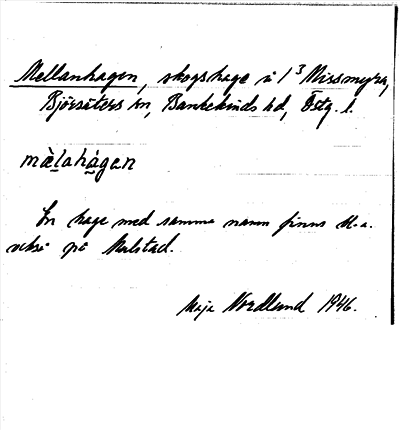 Mellanhagen, skogshage i 1³ Missmyra,
Björsäters sn, Bankekinds hd, Östg. l.
màlahágen
En hage med samma namn finns bl.a.
också på Malstad.
Maja Nordlund 1946.